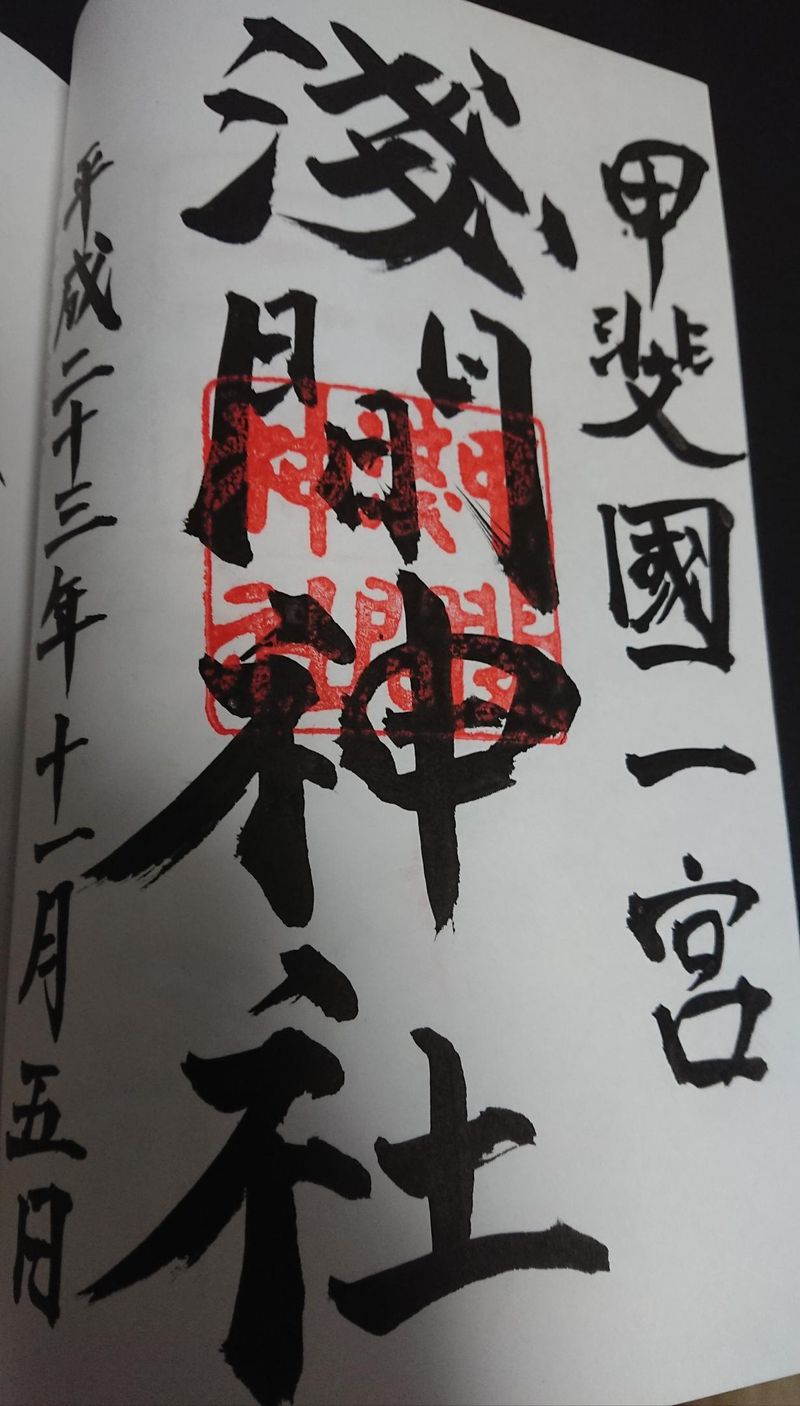 甲斐國一宮
淺間神社
平成二十三年十一月五日